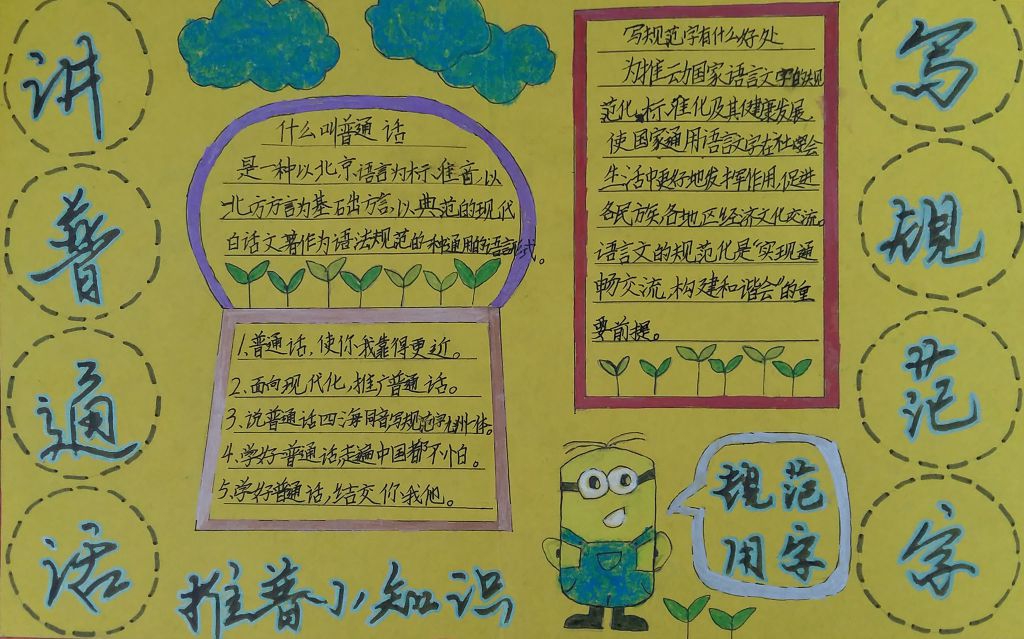 讲
普
通
话
什么叫普通话
是一种以北京语言为标准音,以
北方方言为基石出方言,以典范的现代
白话文著作为语法规范的一种通用的语言形式。
1.普通话,使你我靠得更近。
2.面向现代化,推广普通话。
3.说普通话四海同音写规范字九州一体。
4.学好普通话,走遍中国都不怕。
5.学好普通话,结交你我他。
推普小知识
写规范字有什么好处
为推动国家语言文字的规
范化、标准化及其健康发展,
使国家通用语言文字在社会
生活中更好地发挥作用,促进
各民族、各地区经济文化交流。
语言文的规范化是"实现通
畅交流,构建和谐会"的重
要前提。
规范
用字
写
规
范
字